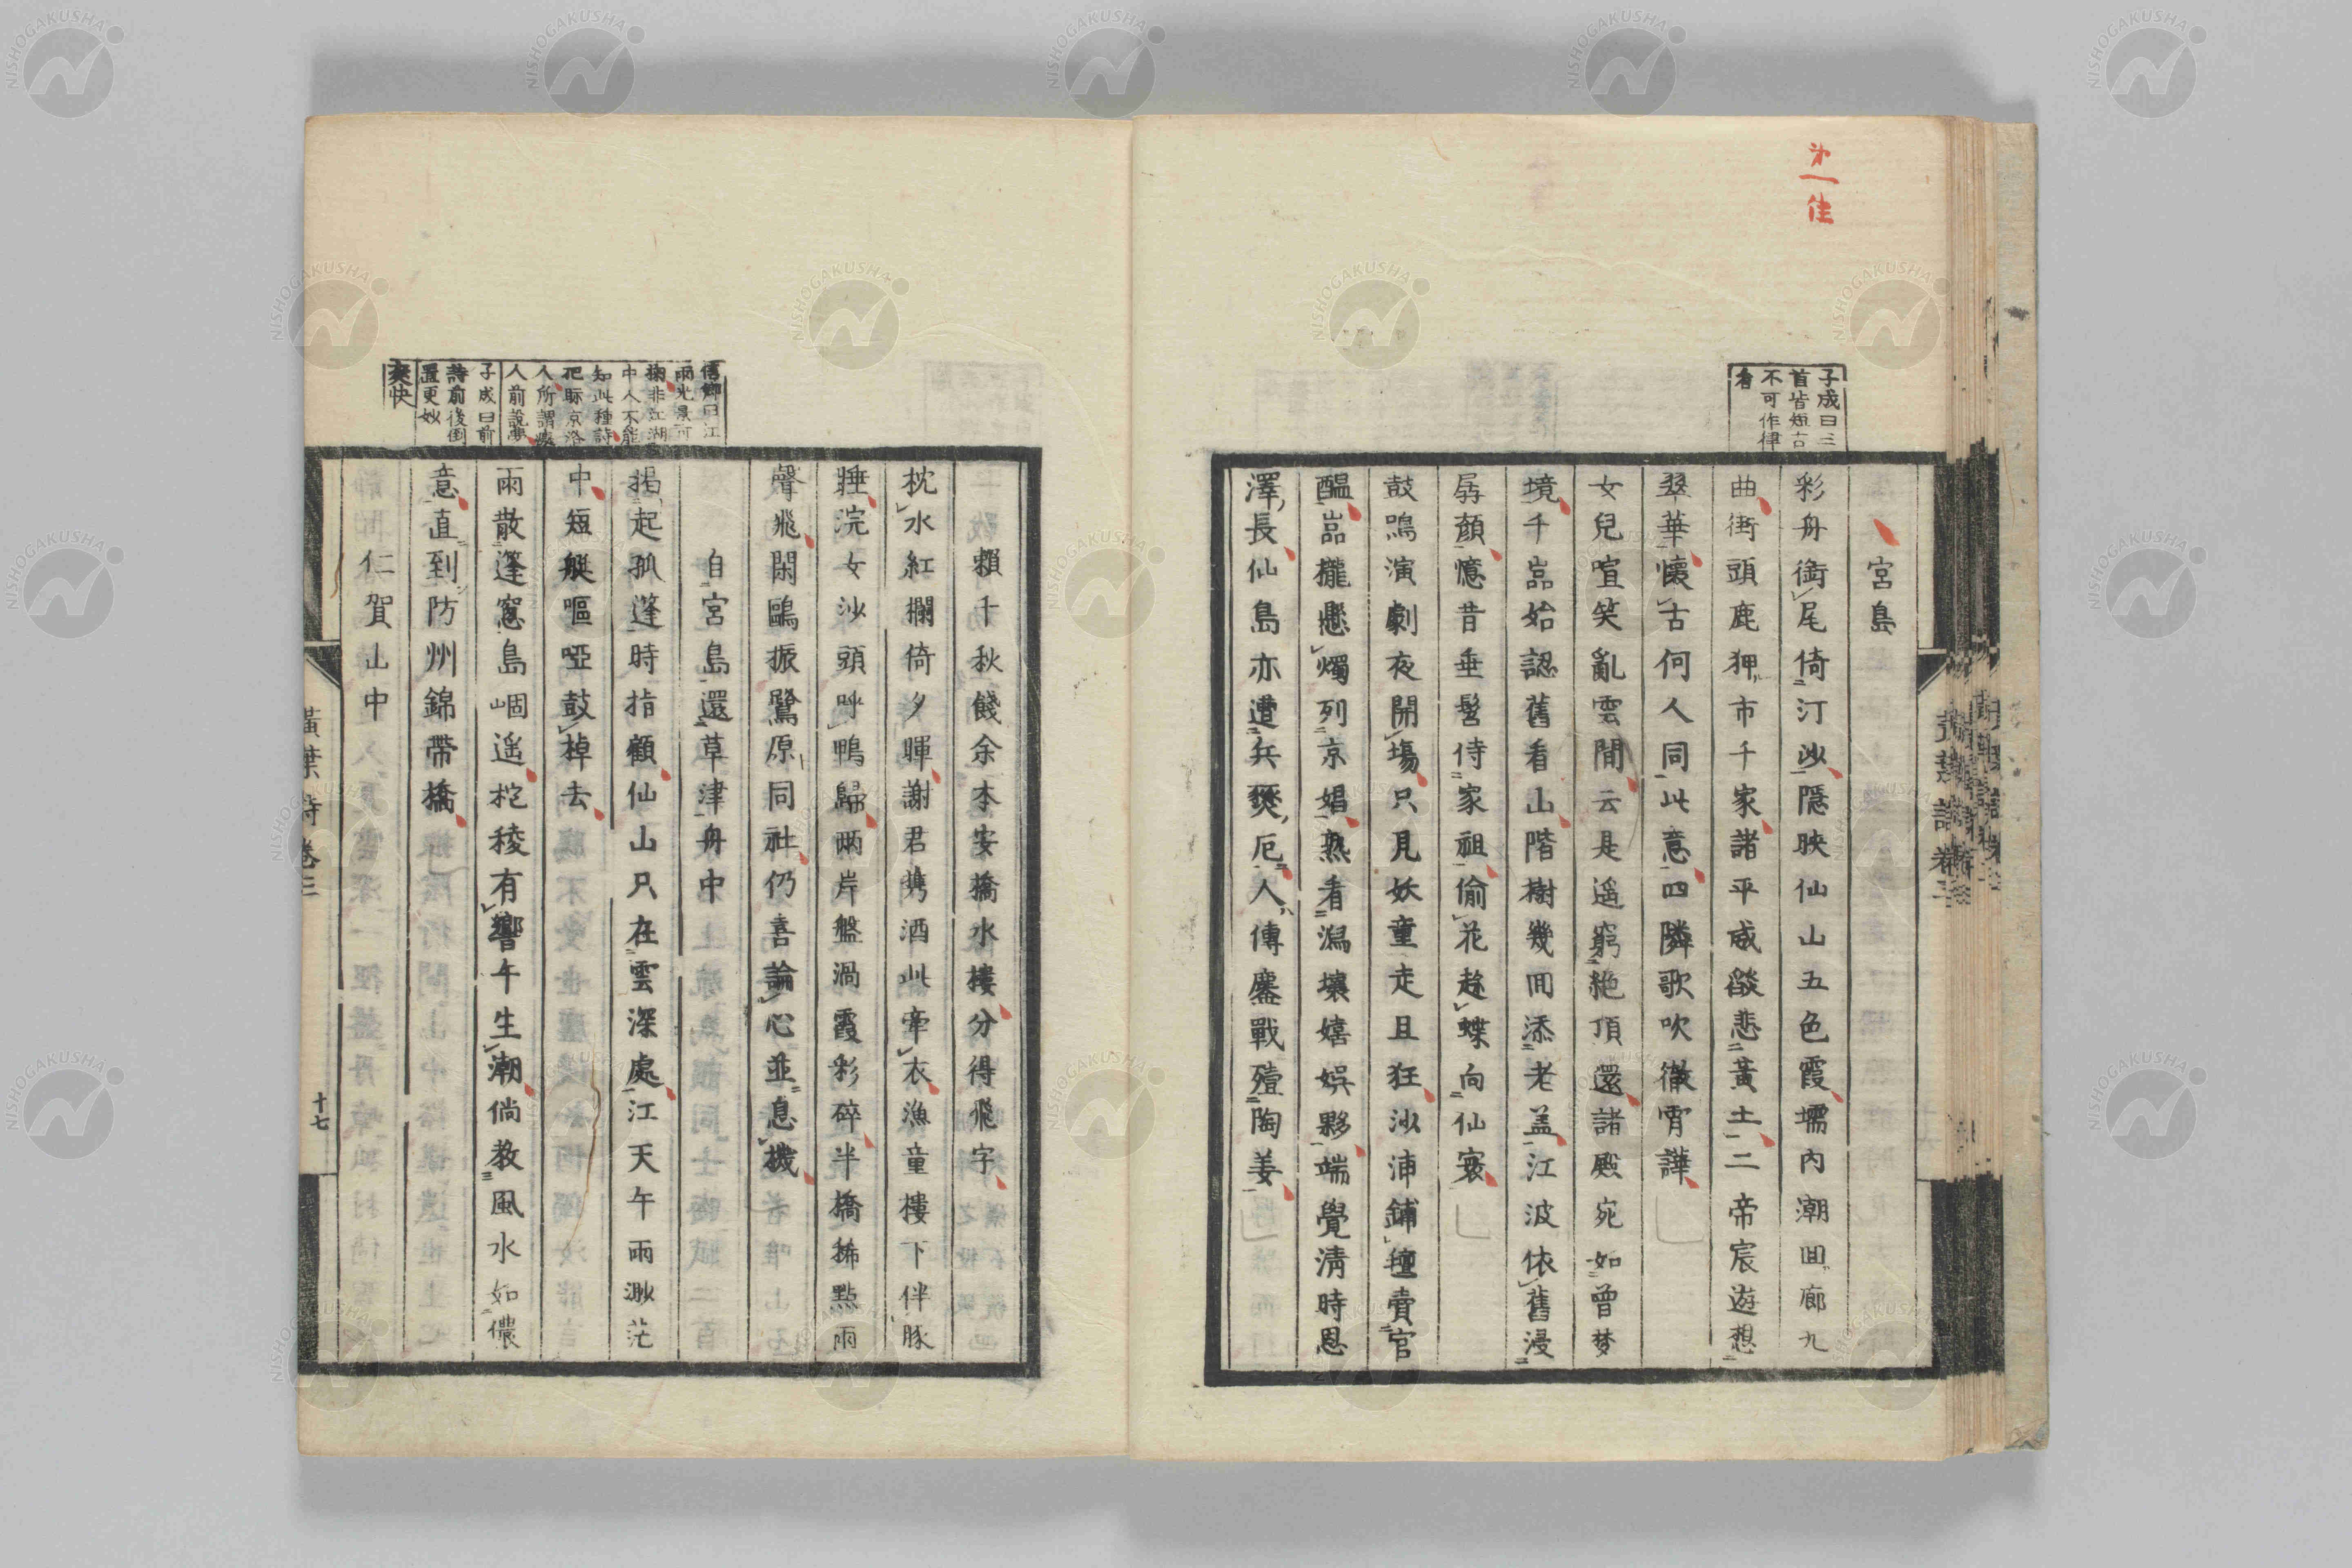 宮島
彩舟銜尾倚汀沙隱映仙山五色霞壖內潮回廊九
曲街頭鹿狎市千家諸平威燄悲黃土二帝宸遊想
翠華懷古何人同此意四隣歌吹徹宵譁
女兒喧笑亂雲間云是遥窮絶頂還諸殿宛如曾梦
境千嵓始認舊看山階樹幾回添老盖江波依舊浸
孱顏憶昔垂髫侍家祖偷花趂蝶向仙寰
鼓鳴演劇夜開塲只見妖童走且狂沙浦鋪氊賣官
醖嵓櫳懸燭列京娼熟看瀉壤嬉娯夥端覺清時恩
澤長仙島亦遭兵燹厄人傳鏖戰殪陶姜
子成曰三
首皆短古
不可作律
看
賴千秋餞余本安橋水樓分得飛字
枕水紅欄倚夕暉謝君携酒此牽衣漁童樓下伴豚
睡浣女沙頭呼鴨歸兩岸盤渦霞彩碎半橋拂點雨
聲飛閑鷗振鷺原同社仍喜論心並息機
自宮島還草津舟中
揭起孤篷時指顧仙山只在雲深處江天午雨渺茫
中短艇嘔啞鼓棹去
雨散篷窓島崓遥柁稜有響午生潮倘教風水如儂
意直到防州錦帶橋
仁賀山中
信鄉曰江
雨光景可
掬非江湖
中人不能
知此種詩
人所謂痴
人前說夢
子成曰前
詩前後倒
置更妙
爽快
黃葉 詩卷三
十七
NISHOGAKUSHA